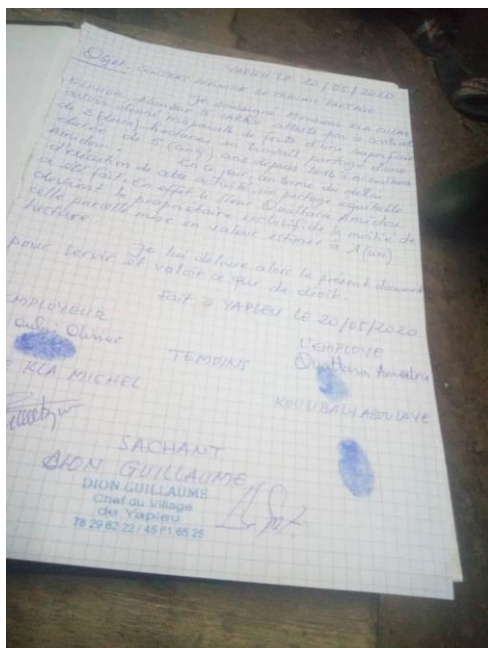 YAPLEU LE 20/05/2020
Objet: CONTRAT DE TRAVAIL PARTAGE
Je soussigné Monsieur KLA OULAI
Olivier, planteur à YAPLEU atteste par le contrat
avoir donné ma parcelle de forêt d'une superficie
de 2 (deux) hectares en travail partagé d'une
durée de 5 (cinq) ans depuis 2015 à Ouattara
Amidou.
En ce jour, au terme du délai
d'exécution de cette activité, un partage équitable
a été fait. En effet le sieur Ouattara Amidou
devient le propriétaire exclusif de la moitié de
celle parcelle mise en valeur estimer à 1 (un)
hectare
Je lui délivre alors le présent document
pour servir et valoir ce que de droit.
Fait à YAPLEU LE 20/05/2020
EMPLOYEUR
L'EMPLOYE
Oulai Olivier
Ouattara Amidou
TEMOINS
KLA MICHEL
KOULIBALY ABOULAYE
SACHANT
DION GUILLAUME
DION GUILLAUME
Chef du Village
de Yapleu
78 29 62 22 / 45 61 65 25